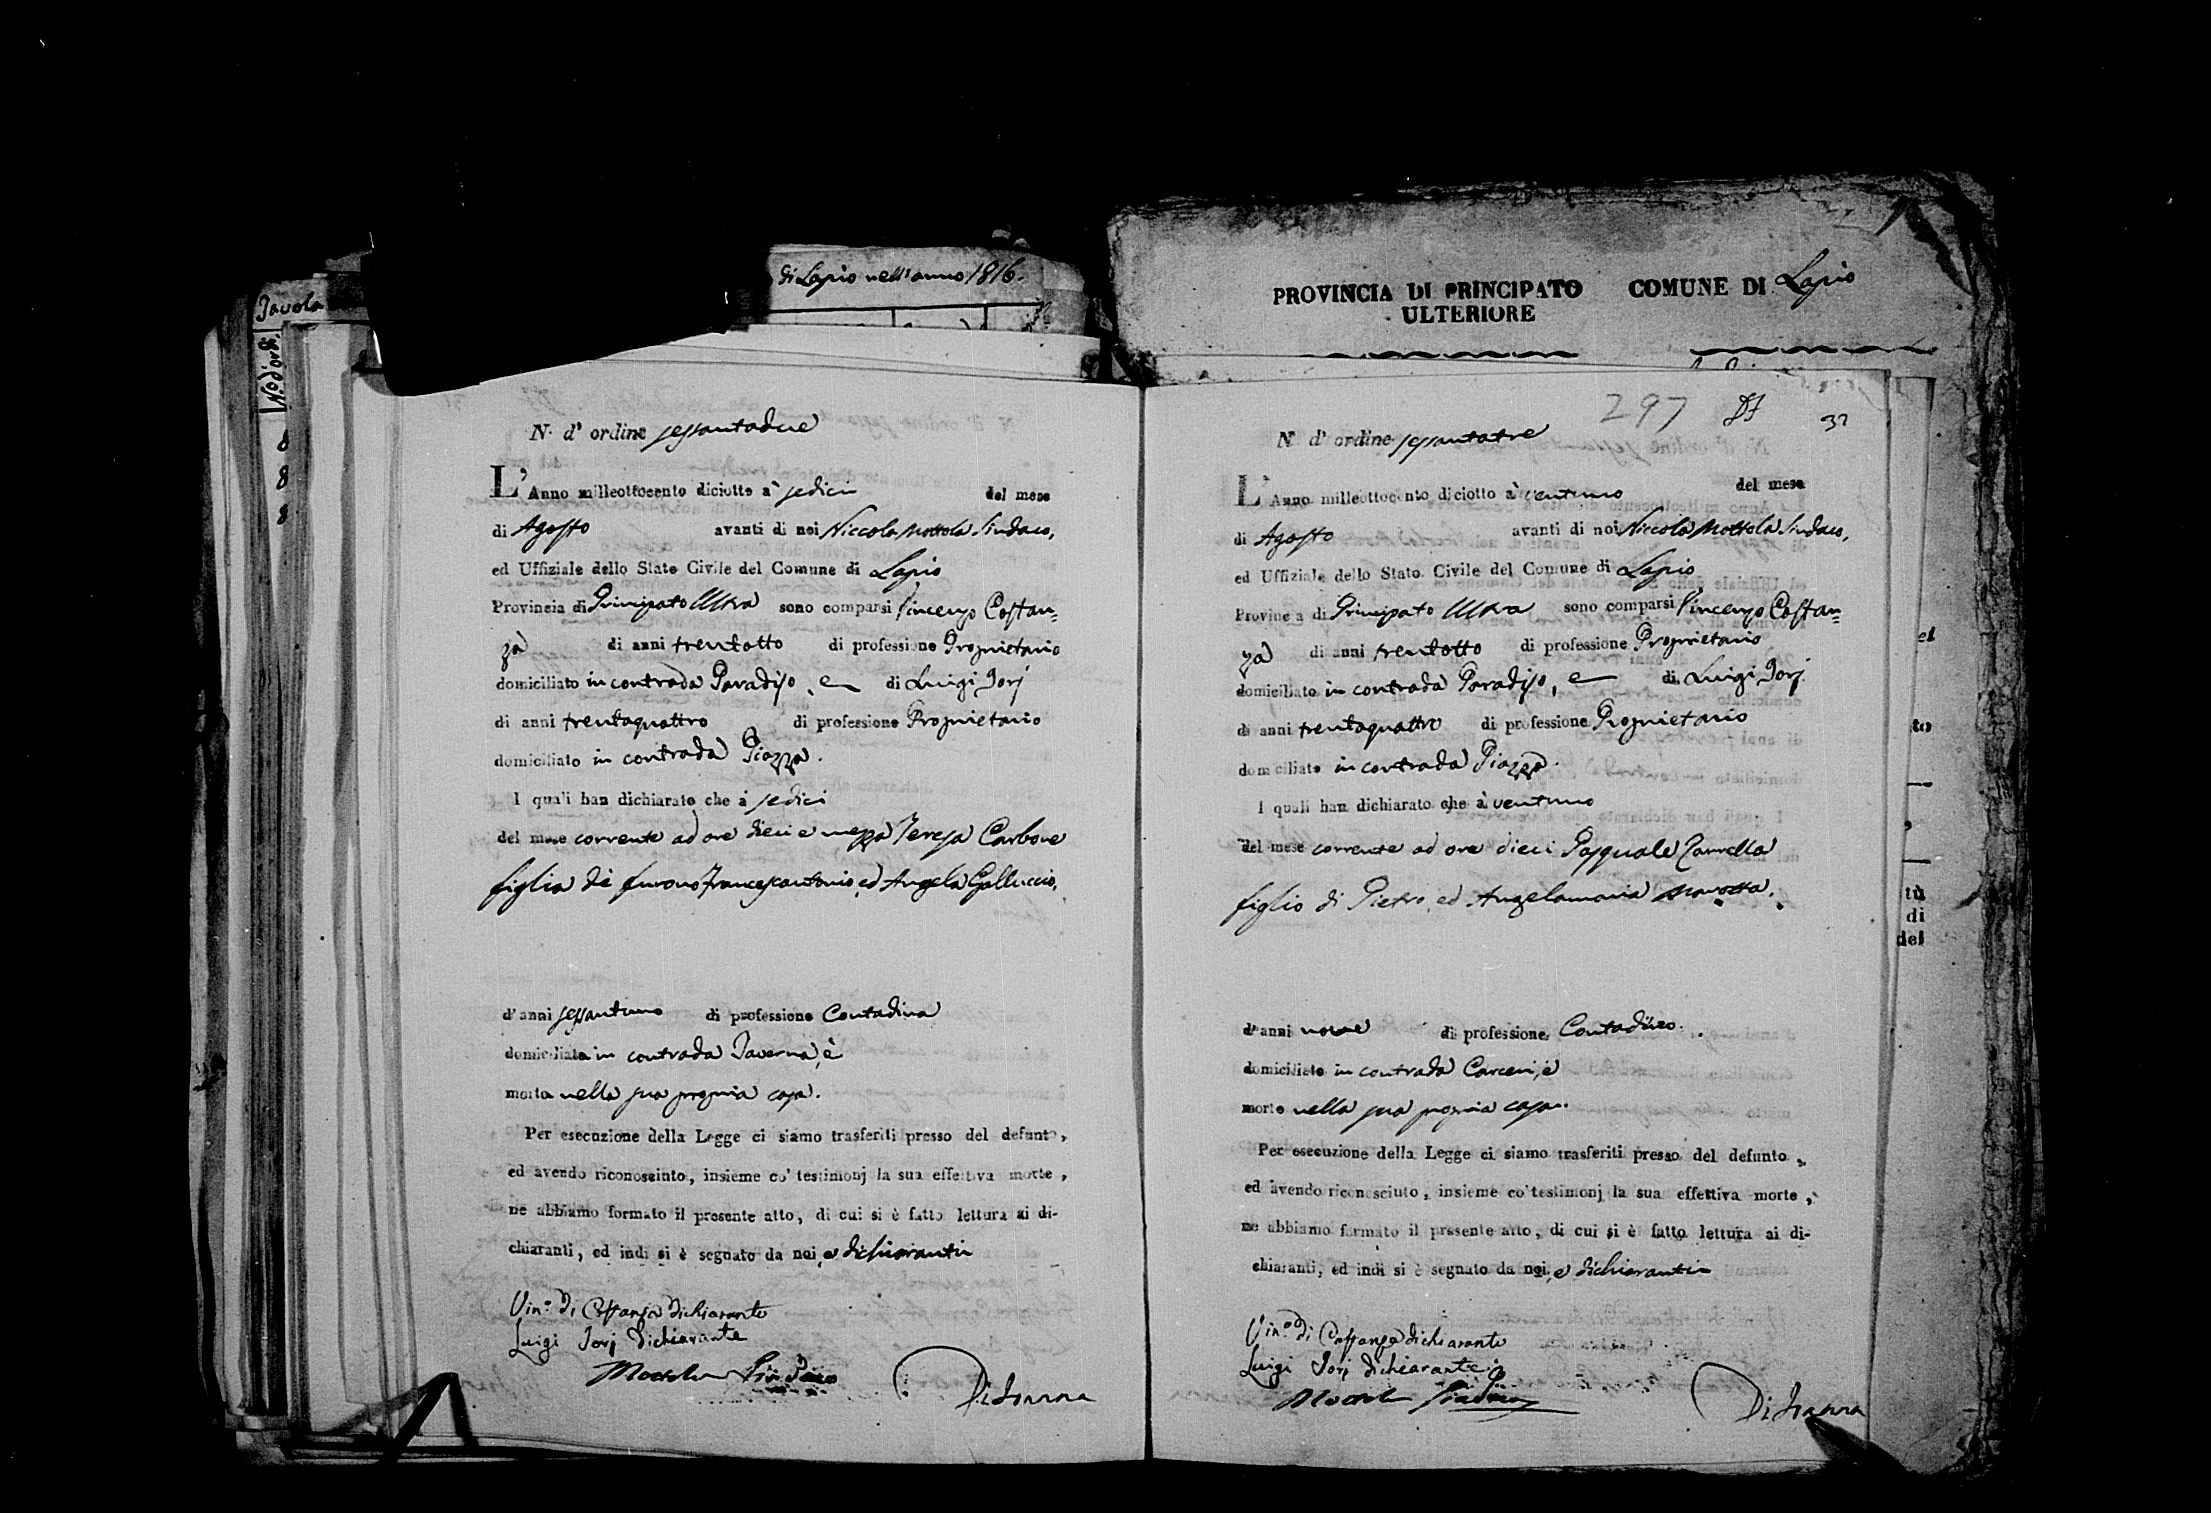 Tavola
N.º d'ordi.
8
8
8
di Lapio nell'anno 1816.
PROVINCIA DI PRINCIPATO COMUNE DI Lapio
ULTERIORE
N. d' ordine sessantadue
L'Anno milleottocento diciotto a' sedici del mese
di Agosto avanti di noi Niccola Mottola Sindaco,
ed Uffiziale dello Stato Civile del Comune di Lapio
Provincia di Principato Ultra sono comparsi Vincenzo Costan=
za di anni trentotto di professione Proprietario
domiciliato in contrada Paradiso, e di Luigi Iorj
di anni trentaquattro di professione Proprietario
domiciliato in contrada Piazza.
I quali han dichiarato che a sedici
del mese corrente ad ore dieci e mezza Teresa Carbone
figlia di furono Francescantonio, ed Angela Galluccio,
d'anni sessantuno di professione Contadina
domiciliata in contrada Taverna, è
morta nella sua propria casa.
Per esecuzione della Legge ci siamo trasferiti presso del defunto,
ed avendo riconosciuto, insieme co' testimonj la sua effettiva morte,
ne abbiamo formato il presente atto, di cui si è fatto lettura ai di-
chiaranti, ed indi si è segnato da noi, e dichiaranti
Vin.º di Costanza dichiarante
Luigi Iorj dichiarante
Mottola Sindaco
Di Ioanna
297 37
N. d' ordine sessantatre
L'Anno milleottocento diciotto a' ventuno del mese
di Agosto avanti di noi Niccola Mottola Sindaco,
ed Uffiziale dello Stato Civile del Comune di Lapio
Provincia di Principato Ultra sono comparsi Vincenzo Costan=
za di anni trentotto di professione Proprietario
domiciliato in contrada Paradiso, e di Luigi Iorj
di anni trentaquattro di professione Proprietario
domiciliato in contrada Piazza.
I quali han dichiarato che a ventuno
del mese corrente ad ore dieci Pasquale Carrella
figlio di Pietro, ed Angelamaria
d'anni nove di professione Contadino.
domiciliato in contrada Carceri, è
morto nella sua propria casa.
Per esecuzione della Legge ci siamo trasferiti presso del defunto,
ed avendo riconosciuto, insieme co' testimonj la sua effettiva morte,
ne abbiamo formato il presente atto, di cui si è fatto lettura ai di-
chiaranti, ed indi si è segnato da noi, e dichiaranti
Vin.º di Costanza dichiarante
Luigi Iorj dichiarante
Mottola Sindaco
Di Ioanna
el
to
tù
di
del